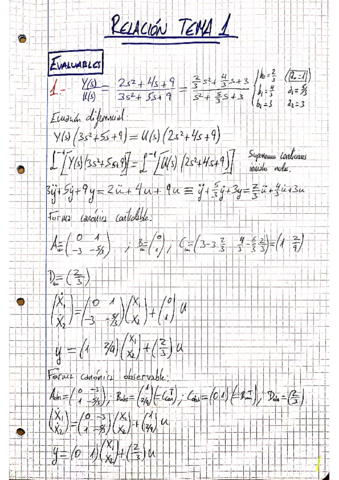 RELACIÓN TEMA 1
EVALUABLES
1.- Y(s)/U(s) = (2s²+4s+9)/(3s²+5s+9) = (2/3 s²+4/3 s+3)/(s²+5/3 s+3)
Ecuación diferencial:
Y(s)(3s²+5s+9)=U(s)(2s²+4s+9)
L⁻¹[Y(s)(3s²+5s+9)]=L⁻¹[U(s)(2s²+4s+9)] Suponemos condiciones iniciales nulas.
3ÿ+5ẏ+9y=2ü+4u̇+9u ≡ ÿ+5/3 ẏ+3y=2/3 ü+4/3 u̇+3u
Forma canónica controlable:
A=(0 1; -3 -5/3) ; B=(0; 1) , C=(3-3·2/3 4/3-5/3·2/3)=(1 2/9)
D=(2/3)
(ẋ₁; ẋ₂)=(0 1; -3 -5/3)(x₁; x₂)+(0; 1)u
y=(1 2/9)(x₁; x₂)+(2/3)u
Forma canónica observable:
(ẋ₁; ẋ₂)=(0 -3; 1 -5/3)(x₁; x₂)+(1; 2/9)u
y=(0 1)(x₁; x₂)+(2/3)u